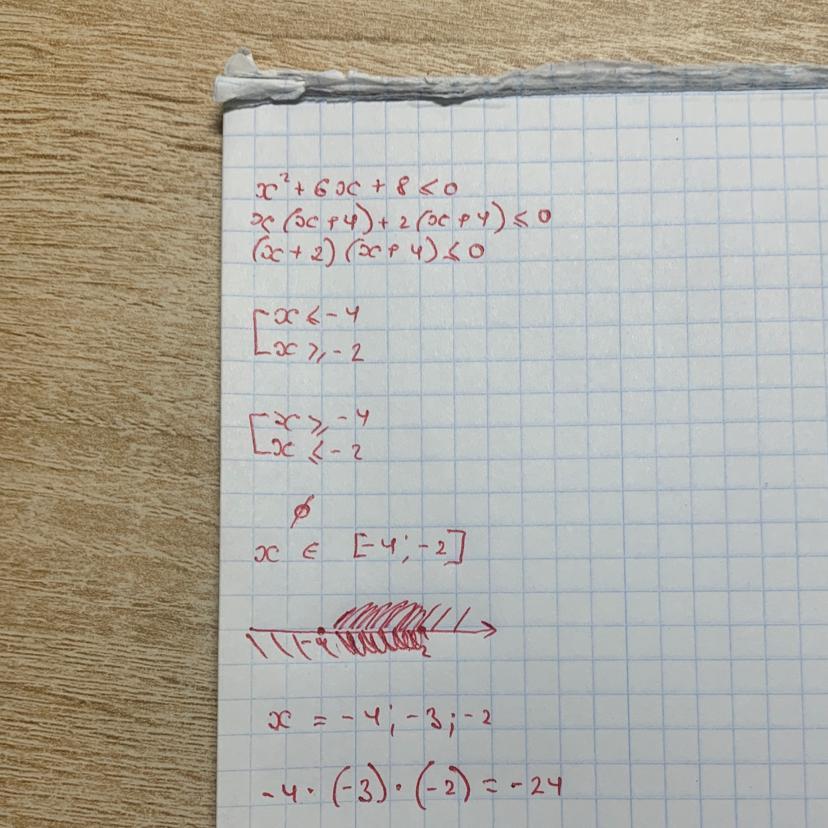 x² + 6x + 8 ≤ 0
x(x+4) + 2(x+4) ≤ 0
(x+2)(x+4) ≤ 0
[x ≤ -4
x ≥ -2
[x ≥ -4
x ≤ -2
∅
x ∈ [-4; -2]
-4 -2
x = -4; -3; -2
-4 · (-3) · (-2) = -24